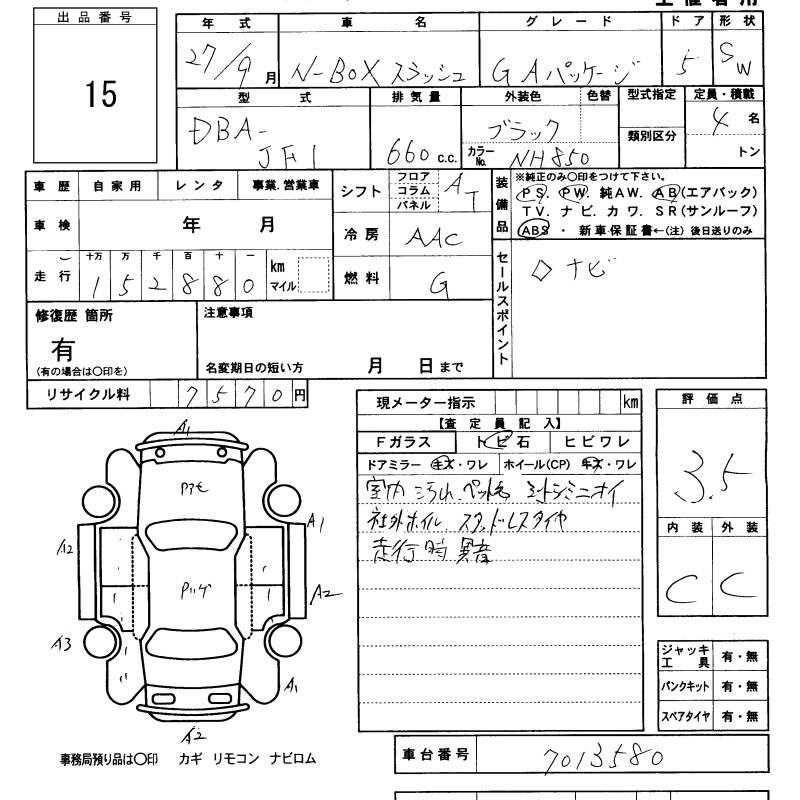 出品番号
15
年式 車名 グレード ドア 形状
27/9月 N-BOX スラッシュ G Aパッケージ 5 SW
型式 排気量 外装色 色替 型式指定 定員・積載
DBA-JF1 660 c.c. ブラック 類別区分 4名
カラーNo. NH850 トン
車歴 自家用 レンタ 事業.営業車
車検 年 月
走行 十万 万 千 百 十 一
152880 km マイル
シフト フロア コラム パネル AT
冷房 AAC
燃料 G
装備品
※純正のみ〇印をつけて下さい。
PS. PW. 純AW. AB(エアバック)
TV. ナビ. カワ. SR(サンルーフ)
ABS ・ 新車保証書←(注) 後日送りのみ
セールスポイント
◇ナビ
修復歴 箇所
有
(有の場合は〇印を)
注意事項
名変期日の短い方 月 日まで
リサイクル料 7570円
現メーター指示 km
【査定員記入】
Fガラス トビ石 ヒビワレ
ドアミラー キズ・ワレ ホイール(CP) キズ・ワレ
室内 汚れ.ペット毛 シートシミニオイ
社外ホイル. スタッドレスタイヤ
走行時 異音
評価点
3.5
内装 外装
C C
ジャッキ工具 有・無
パンクキット 有・無
スペアタイヤ 有・無
A1
A1
A2
A2
A3
A1
A2
事務局預り品は〇印 カギ リモコン ナビロム
車台番号 7013580